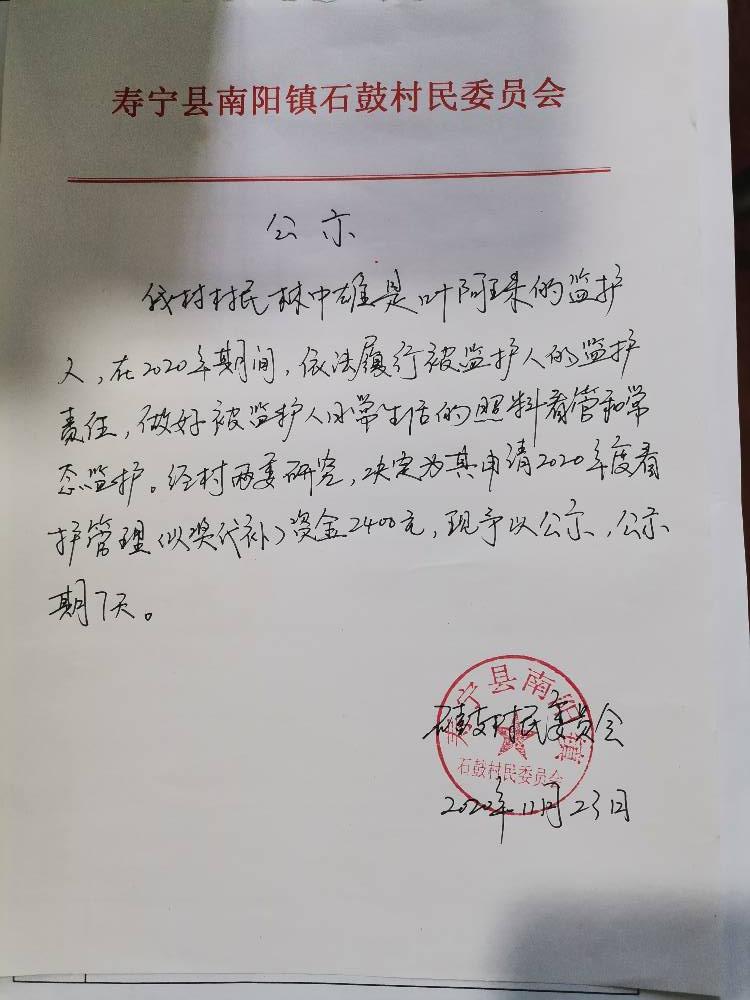 寿宁县南阳镇石鼓村民委员会
公示
我村村民林中雄是叶阿珠的监护
人，在2020年期间，依法履行被监护人的监护
责任，做好被监护人日常生活的照料看管和常
态监护。经村两委研究，决定为其申请2020年度看
护管理（以奖代补）资金2400元，现予以公示，公示
期7天。
石鼓村民委员会
2020年11月23日
寿宁县南阳镇
石鼓村民委员会